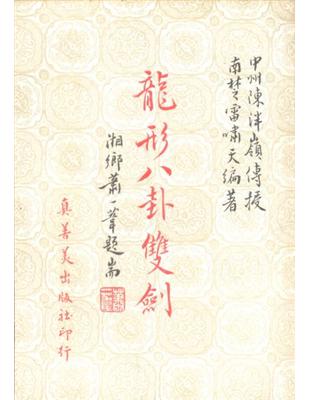 中州陳泮嶺傳授
南楚雷嘯天編著
龍形八卦雙劍
湘鄉蕭一葦題耑
真善美出版社印行